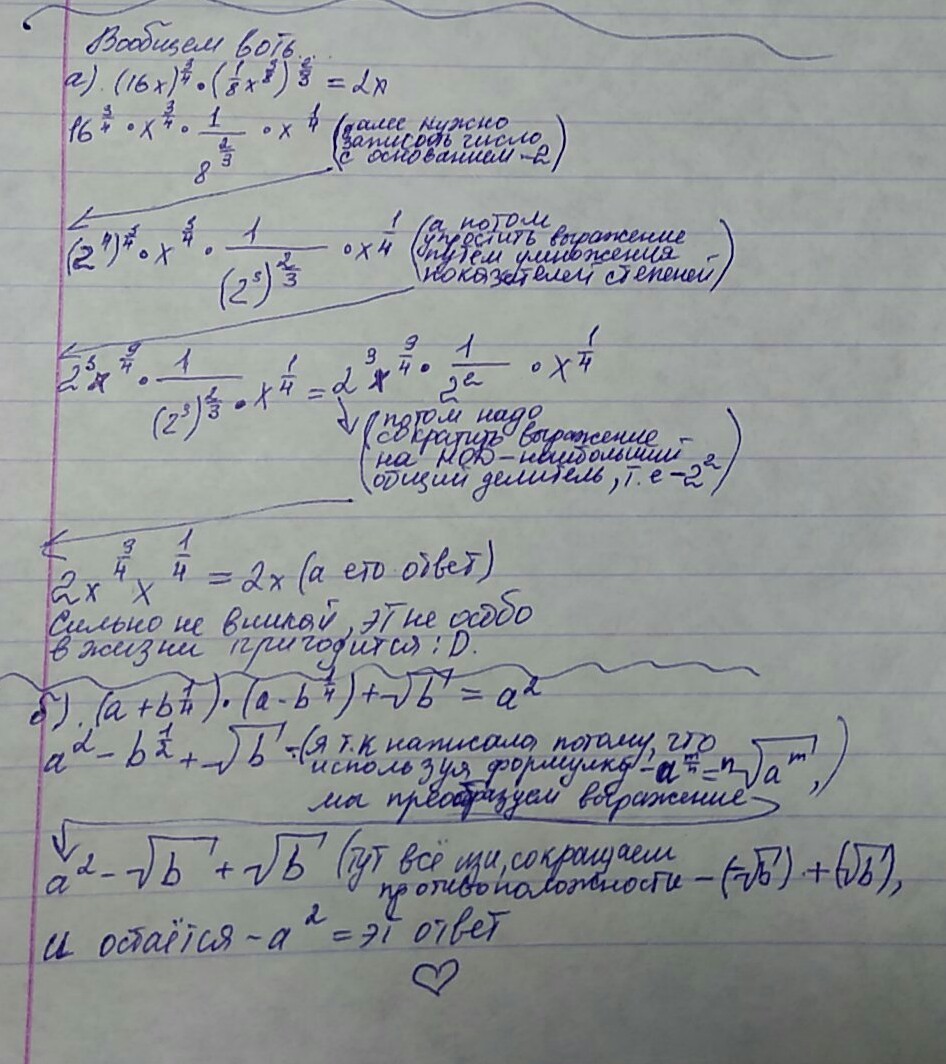 Вообщем воть...
а). (16x)^(3/4) • (1/8 x^(3/8))^(2/3) = 2x
16^(3/4) • x^(3/4) • 1/8^(2/3) • x^(1/4) (далее нужно
записать число
с основанием -2)
(2^4)^(3/4) • x^(3/4) • 1/(2^3)^(2/3) • x^(1/4) (а потом
упростить выражение
путём умножения
показателей степеней)
2^3 x^(3/4) • 1/(2^3)^(2/3) • x^(1/4) = 2^3 x^(3/4) • 1/2^2 • x^(1/4)
(потом надо
сократить выражение
на НОД-наибольший
общий делитель, т.е -2^2)
2x^(3/4) x^(1/4) = 2x (а ето ответ)
Сильно не вникай, эт не особо
в жизни пригодится :D.
б). (a + b^(1/4)) • (a - b^(1/4)) + √b = a^2
a^2 - b^(1/2) + √b - (я т.к написала потому, что
используя формулку - a^(m/n) = ⁿ√a^m,)
мы преобразуем выражение
a^2 - √b + √b (тут всё изи, сокращаем
противоположности - (-√b) + (√b),
и остаётся - a^2 = эт ответ
♡